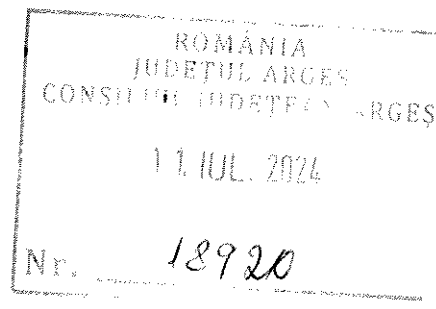 ROMÂNIA
JUDEȚUL ARGEȘ
CONSILIUL JUDEȚEAN ARGEȘ
11. IUL. 2024
Nr. 18920